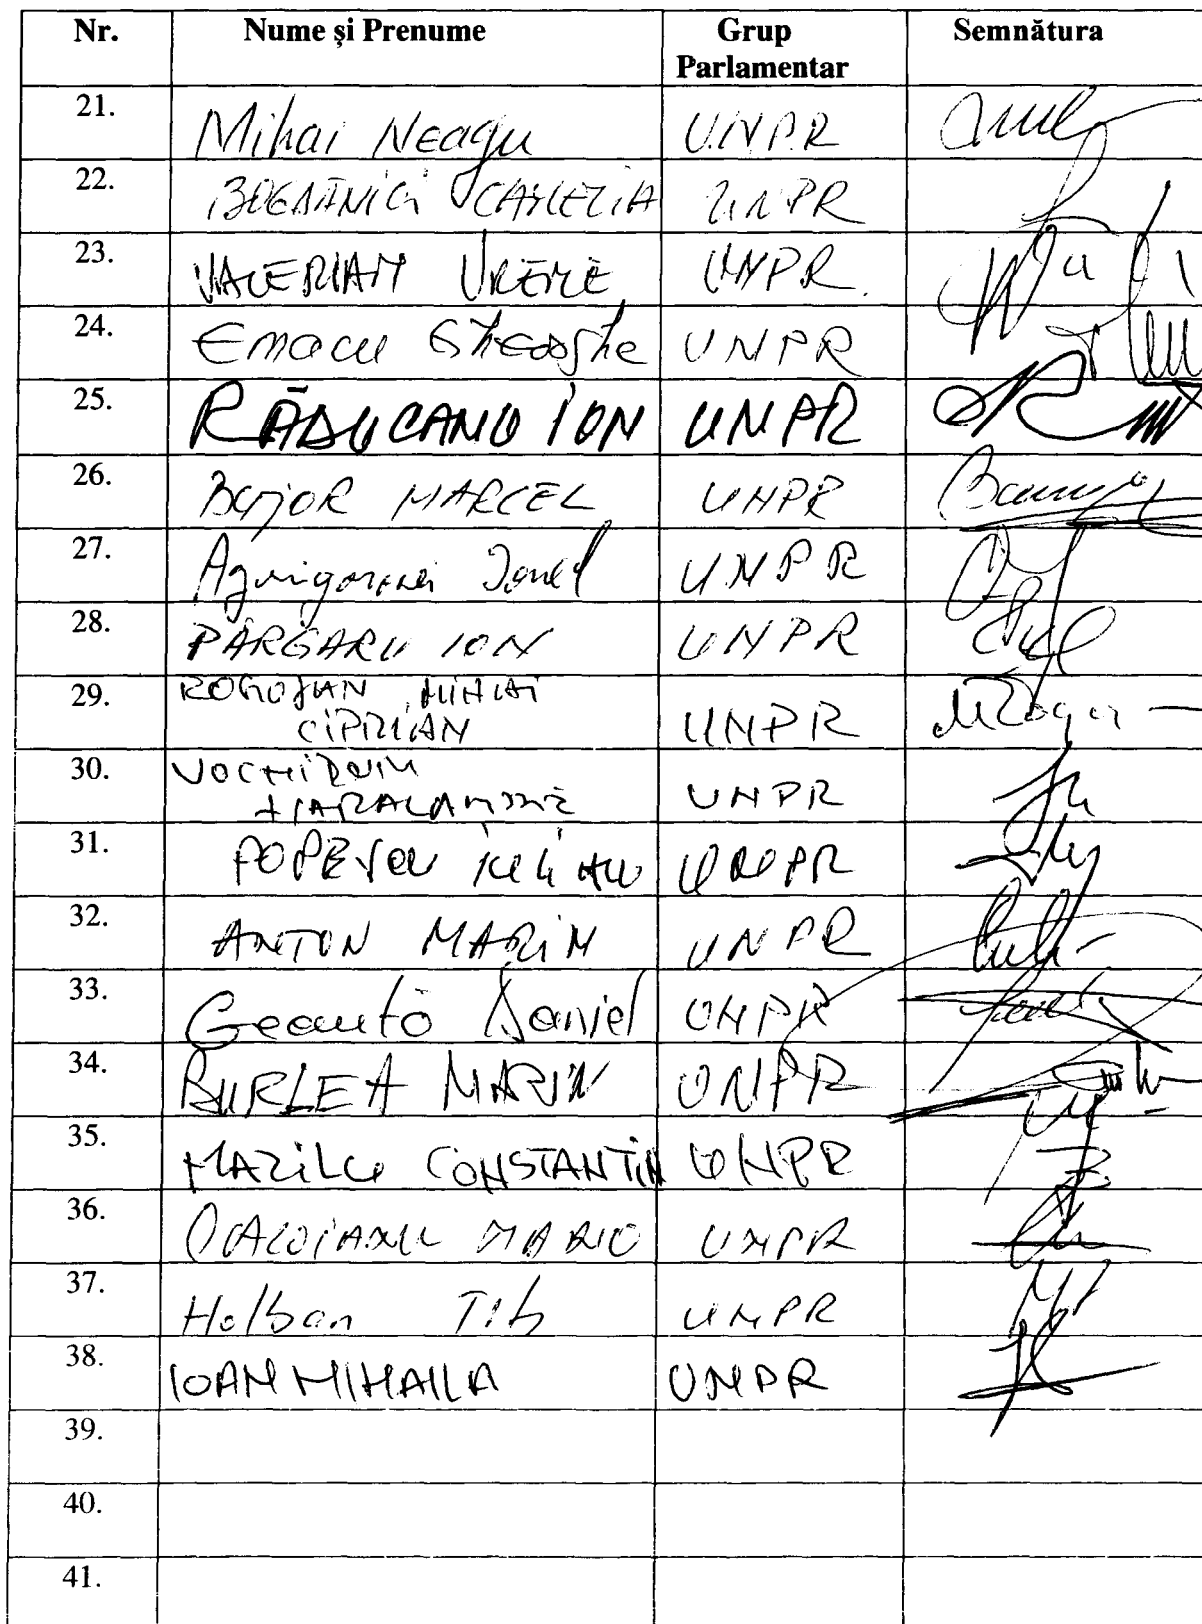 Nr. Nume și Prenume Grup Parlamentar Semnătura
21. Mihai Neagu UNPR
22. BOGDĂNICI CAMELIA UNPR
23. VALERIAN VREME UNPR
24. Emacu Gheorghe UNPR
25. RĂDUCANU ION UNPR
26. Bajor MARCEL UNPR
27. Agrigoroaei Ionel UNPR
28. PÂRGARU ION UNPR
29. ROGOJAN MIHAI
CIPRIAN UNPR
30. VOCHIȚOIU
HARALAMBIE UNPR
31. POPESCU IULIAN UNPR
32. ANTON MARIN UNPR
33. Geantă Daniel UNPR
34. BURLEA MARIN UNPR
35. MAZILU CONSTANTIN UNPR
36. MARIO UNPR
37. Holban Tib UNPR
38. IOAN MIHAILA UNPR
39.
40.
41.